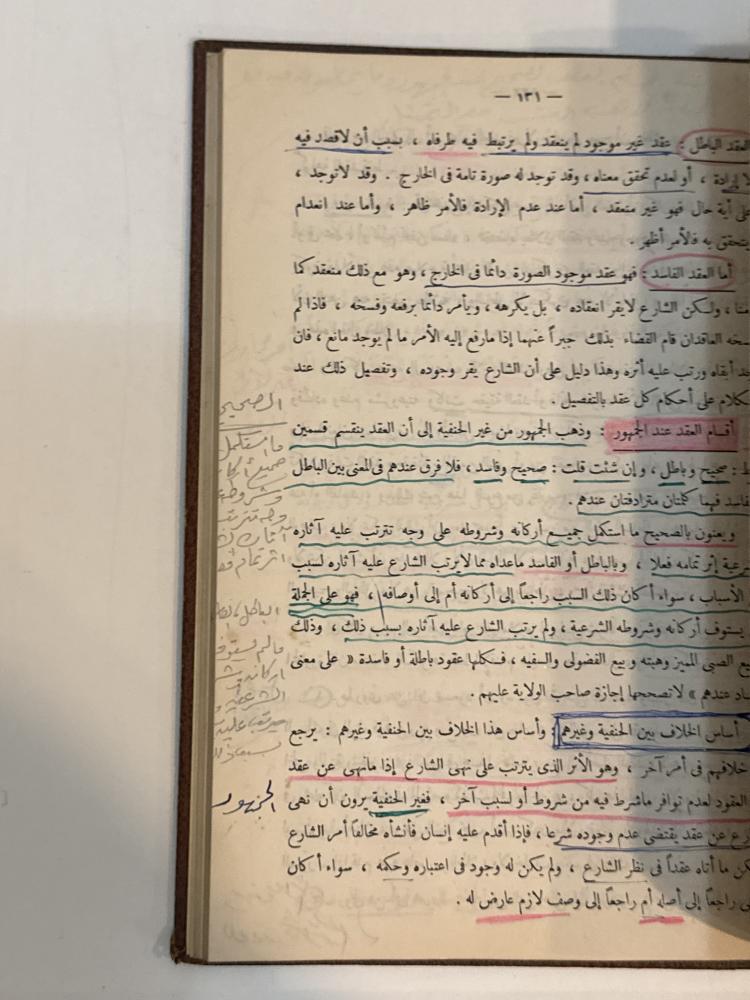 — ١٣١ —
العقد الباطل : عقد غير موجود لم ينعقد ولم يرتبط فيه طرفاه ، بسبب أن لاقصد فيه
لا إرادة ، أو لعدم تحقق معناه ، وقد توجد له صورة تامة فى الخارج . وقد لاتوجد ،
على أية حال فهو غير منعقد ، أما عند عدم الإرادة فالأمر ظاهر ، وأما عند انعدام
يتحقق به فالأمر أظهر .
أما العقد الفاسد : فهو عقد موجود الصورة دائما فى الخارج ، وهو مع ذلك منعقد كما
منا ، ولكن الشارع لايقر انعقاده ، بل يكرهه ، ويأمر دائما برفعه وفسخه ، فاذا لم
سخه العاقدان قام القضاء بذلك جبراً عنهما إذا مارفع إليه الأمر ما لم يوجد مانع ، فان
جد أبقاه ورتب عليه أثره وهذا دليل على أن الشارع يقر وجوده ، وتفصيل ذلك عند
كلام على أحكام كل عقد بالتفصيل .
أقسام العقد عند الجمهور : وذهب الجمهور من غير الحنفية إلى أن العقد ينقسم قسمين
ط : صحيح وباطل ، وإن شئت قلت : صحيح وفاسد ، فلا فرق عندهم فى المعنى بين الباطل
فاسد فهما كلمتان مترادفتان عندهم .
ويعنون بالصحيح ما استكمل جميع أركانه وشروطه على وجه تترتب عليه آثاره
رعية إثر تمامه فعلا ، وبالباطل أو الفاسد ماعداه مما لايرتب الشارع عليه آثاره لسبب
الأسباب ، سواء أكان ذلك السبب راجعاً إلى أركانه أم إلى أوصافه ، فهو على الجملة
يستوف أركانه وشروطه الشرعية ، ولم يرتب الشارع عليه آثاره بسبب ذلك ، وذلك
يع الصبى المميز وهبته وبيع الفضولى والسفيه ، فكلها عقود باطلة أو فاسدة « على معنى
ساد عندهم » لاتصححها إجازة صاحب الولاية عليهم .
أساس الخلاف بين الحنفية وغيرهم : وأساس هذا الخلاف بين الحنفية وغيرهم : يرجع
خلافهم فى أمر آخر ، وهو الأثر الذى يترتب على نهى الشارع إذا مانهى عن عقد
العقود لعدم توافر ماشرط فيه من شروط أو لسبب آخر ، فغير الحنفية يرون أن نهى
رع عن عقد يقتضى عدم وجوده شرعا ، فإذا أقدم عليه إنسان فأنشأه مخالفاً أمر الشارع
كن ما أتاه عقداً فى نظر الشارع ، ولم يكن له وجود فى اعتباره وحكمه ، سواء أكان
راجعاً إلى أصله أم راجعاً إلى وصف لازم عارض له .
الصحيح
ما استكمل
جميع
وشروطه
الباطل
ما لم يستوف
أركانه
الشرعية
الجمهور